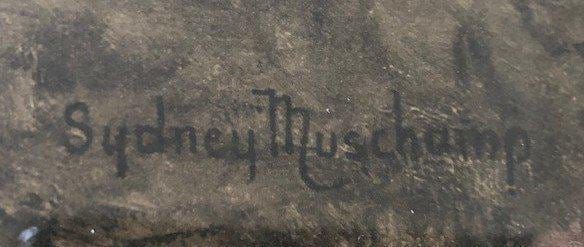 Sydney Muschamp